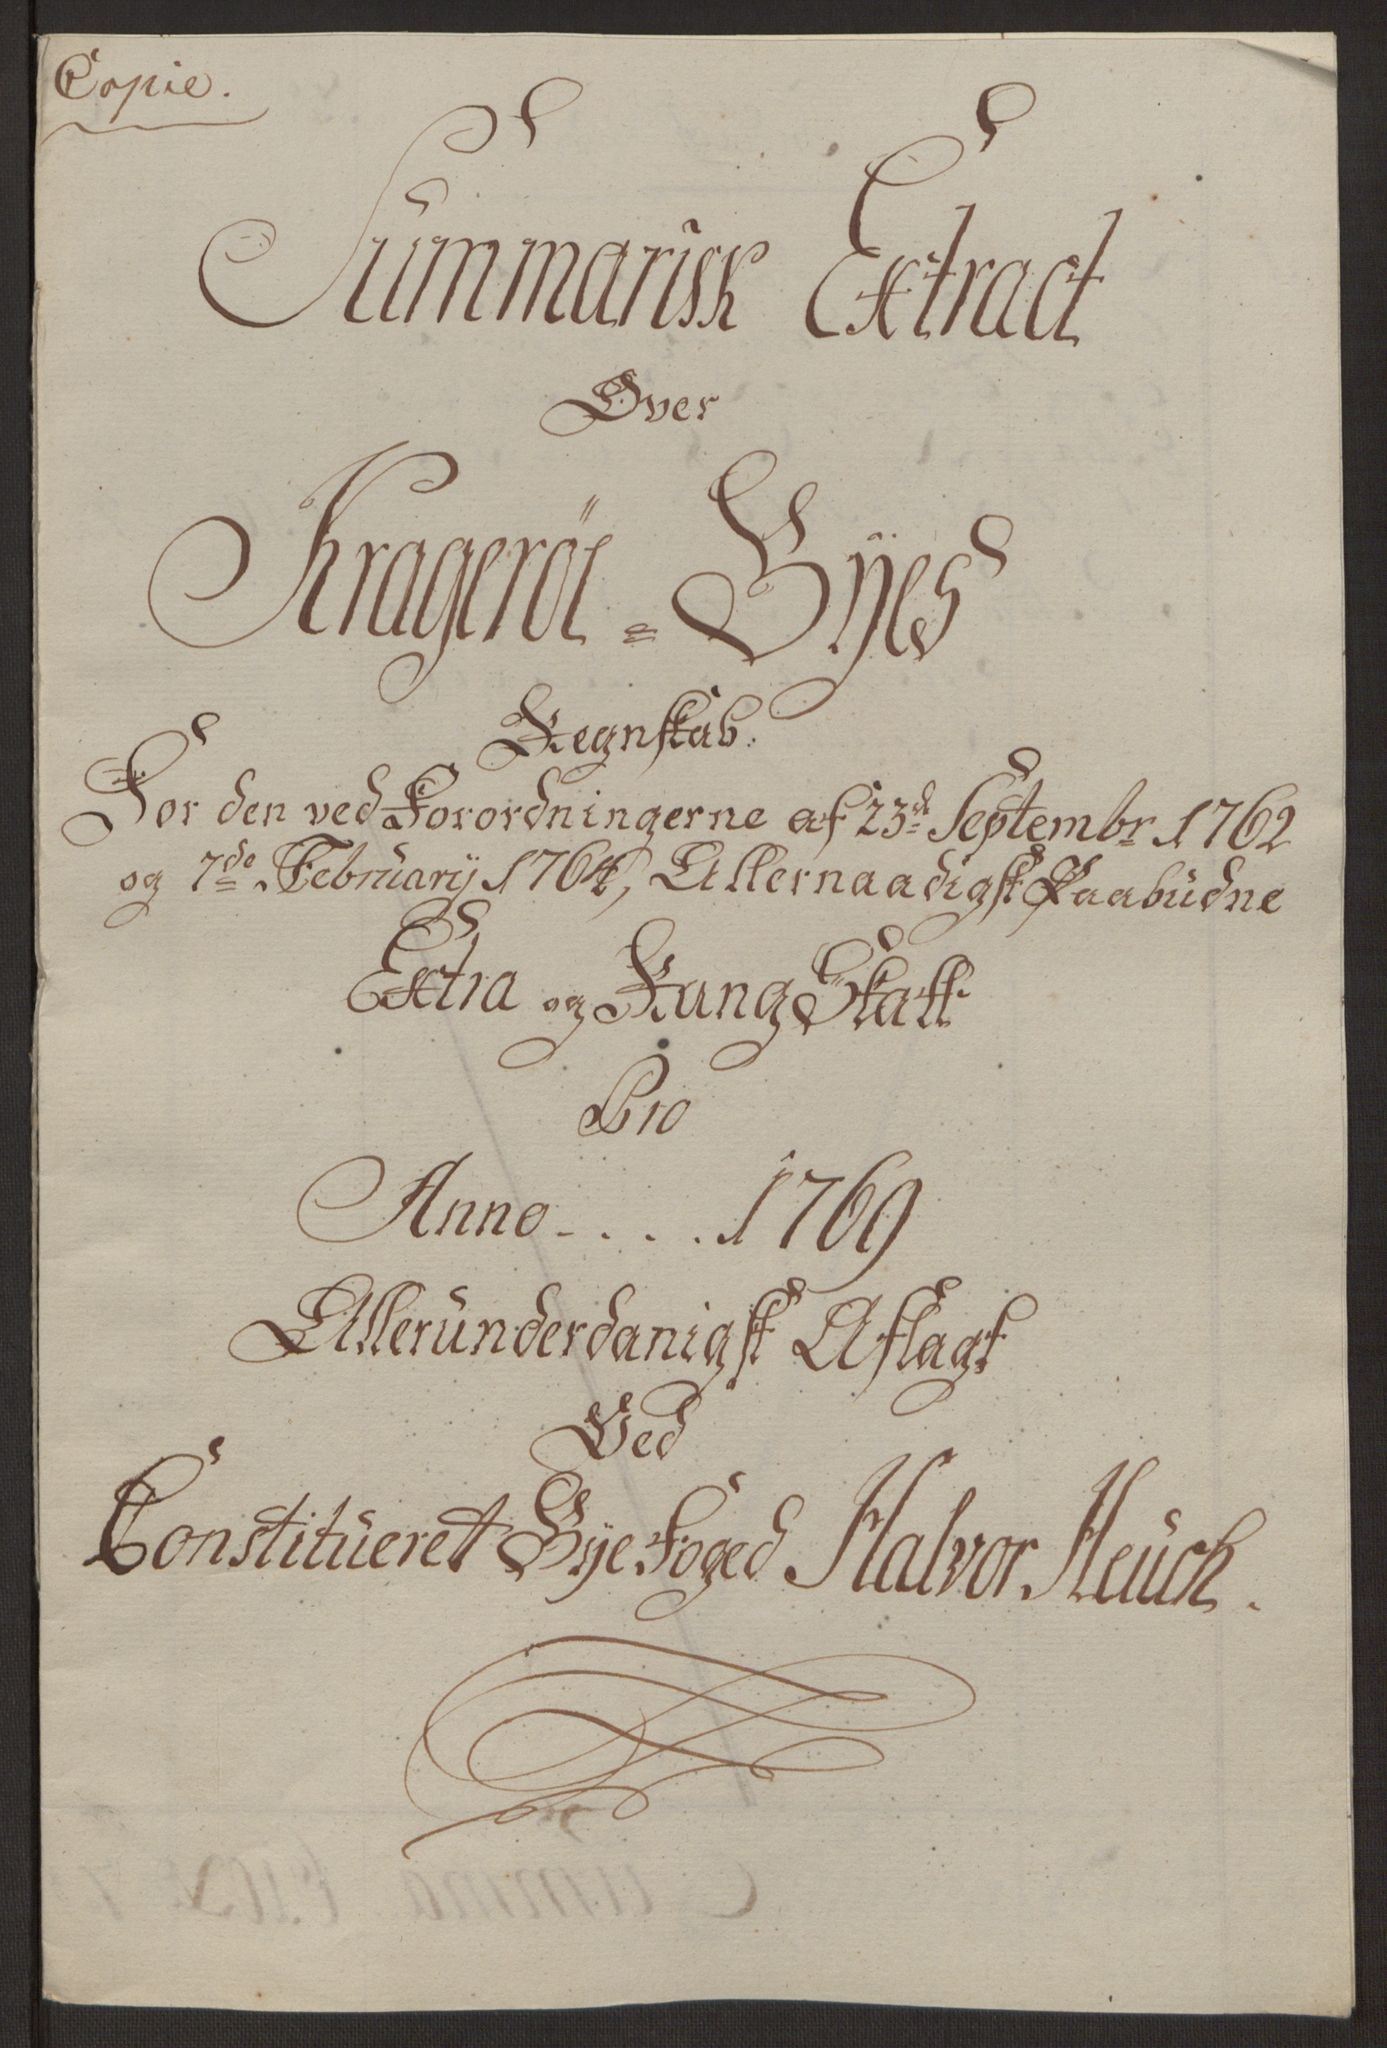 Copie.
Summarisk Extract
Over
Kragerøe = Byes
Regnskab.
For den ved Forordningerne af 23de Septembr 1762
og 7de February 1764, Allernaadigst Paabudne
Extra og Rang Skatt
Pro
Anno . . . . 1769
Allerunderdanigst Aflagt
Ved
Constitueret Bye Foged Halvor Heuch.